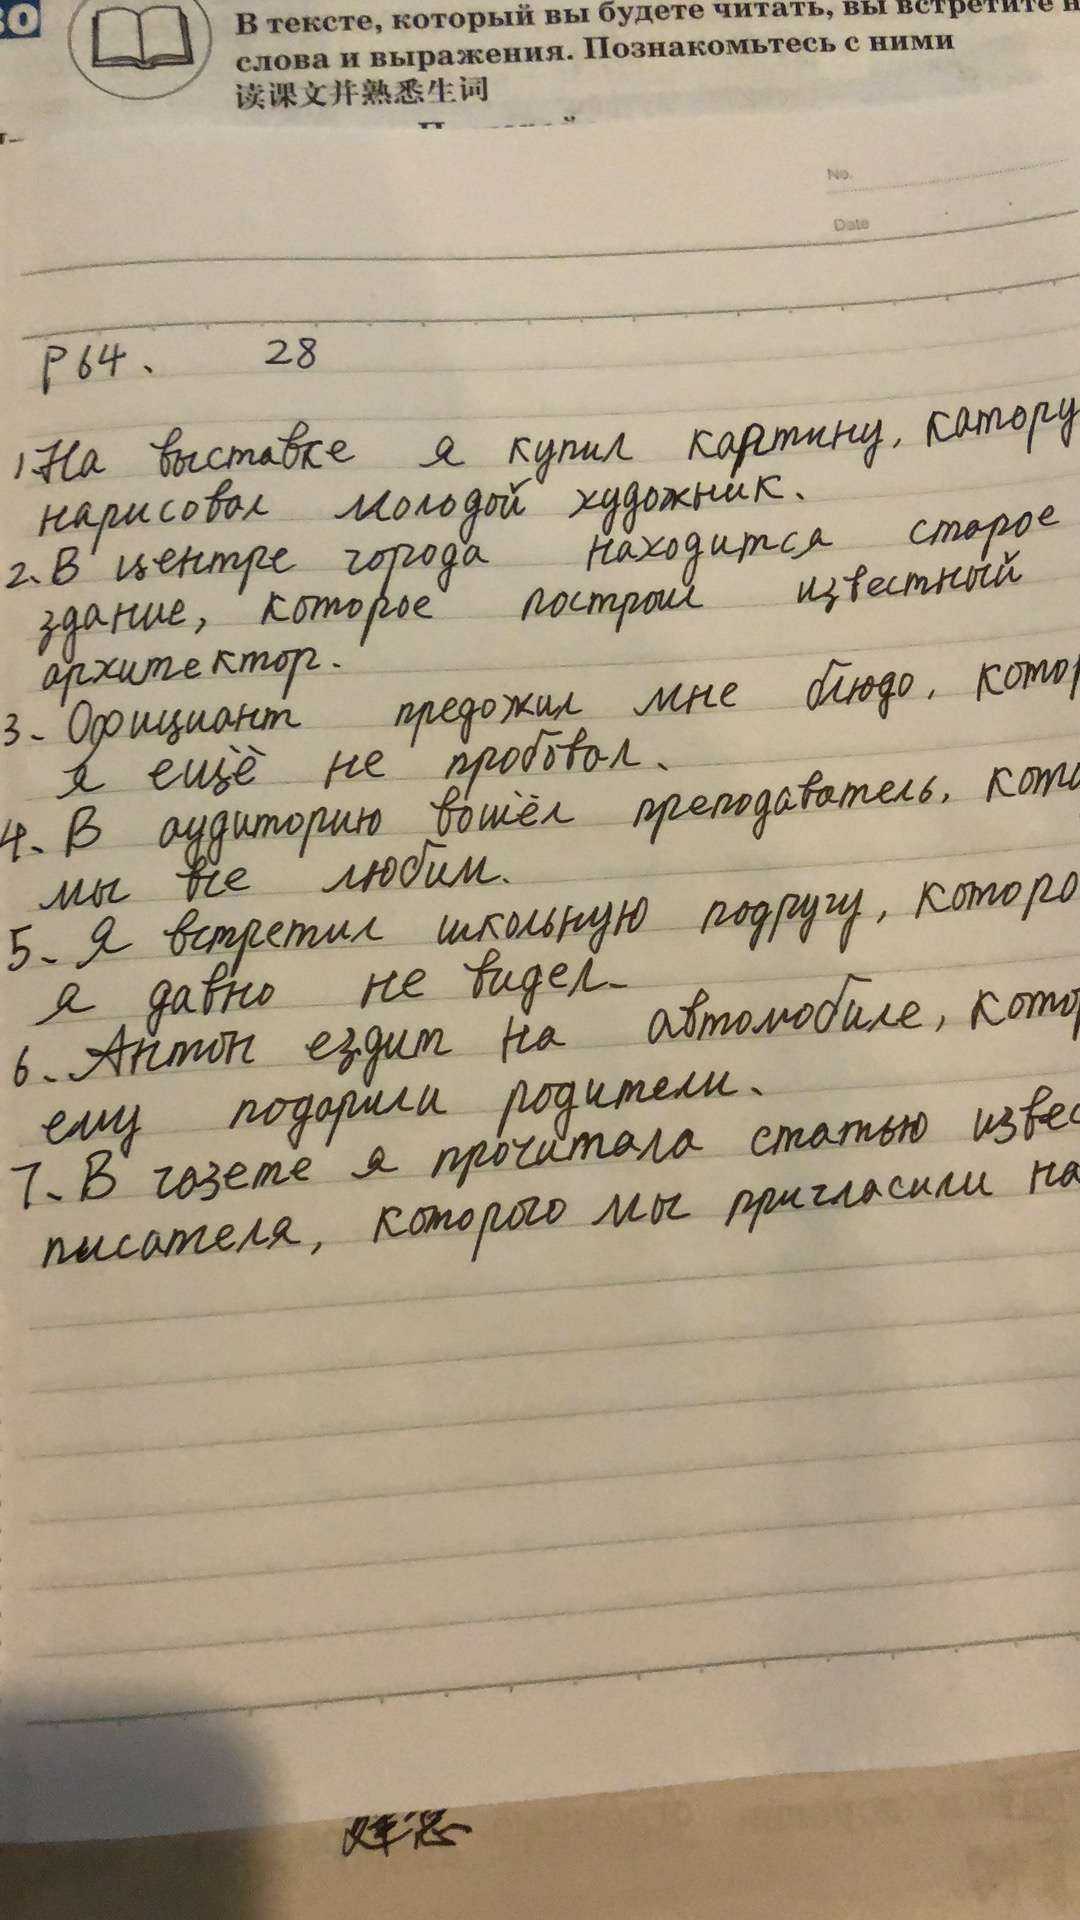 В тексте, который вы будете читать, вы встретите н
слова и выражения. Познакомьтесь с ними
读课文并熟悉生词
No.
Date
P 64. 28
1. На выставке я купил картину, катору
нарисовал молодой художник.
2. В центре города находится старое
здание, которое построил известный
архитектор.
3. Официант предожил мне блюдо, котор
я ещё не пробовал.
4. В аудиторию вошёл преподаватель, кото
мы все любим.
5. Я встретил школьную подругу, которо
я давно не видел.
6. Антон ездит на автомобиле, котор
ему подарили родители.
7. В газете я прочитала статью извес
писателя, которого мы пригласили на